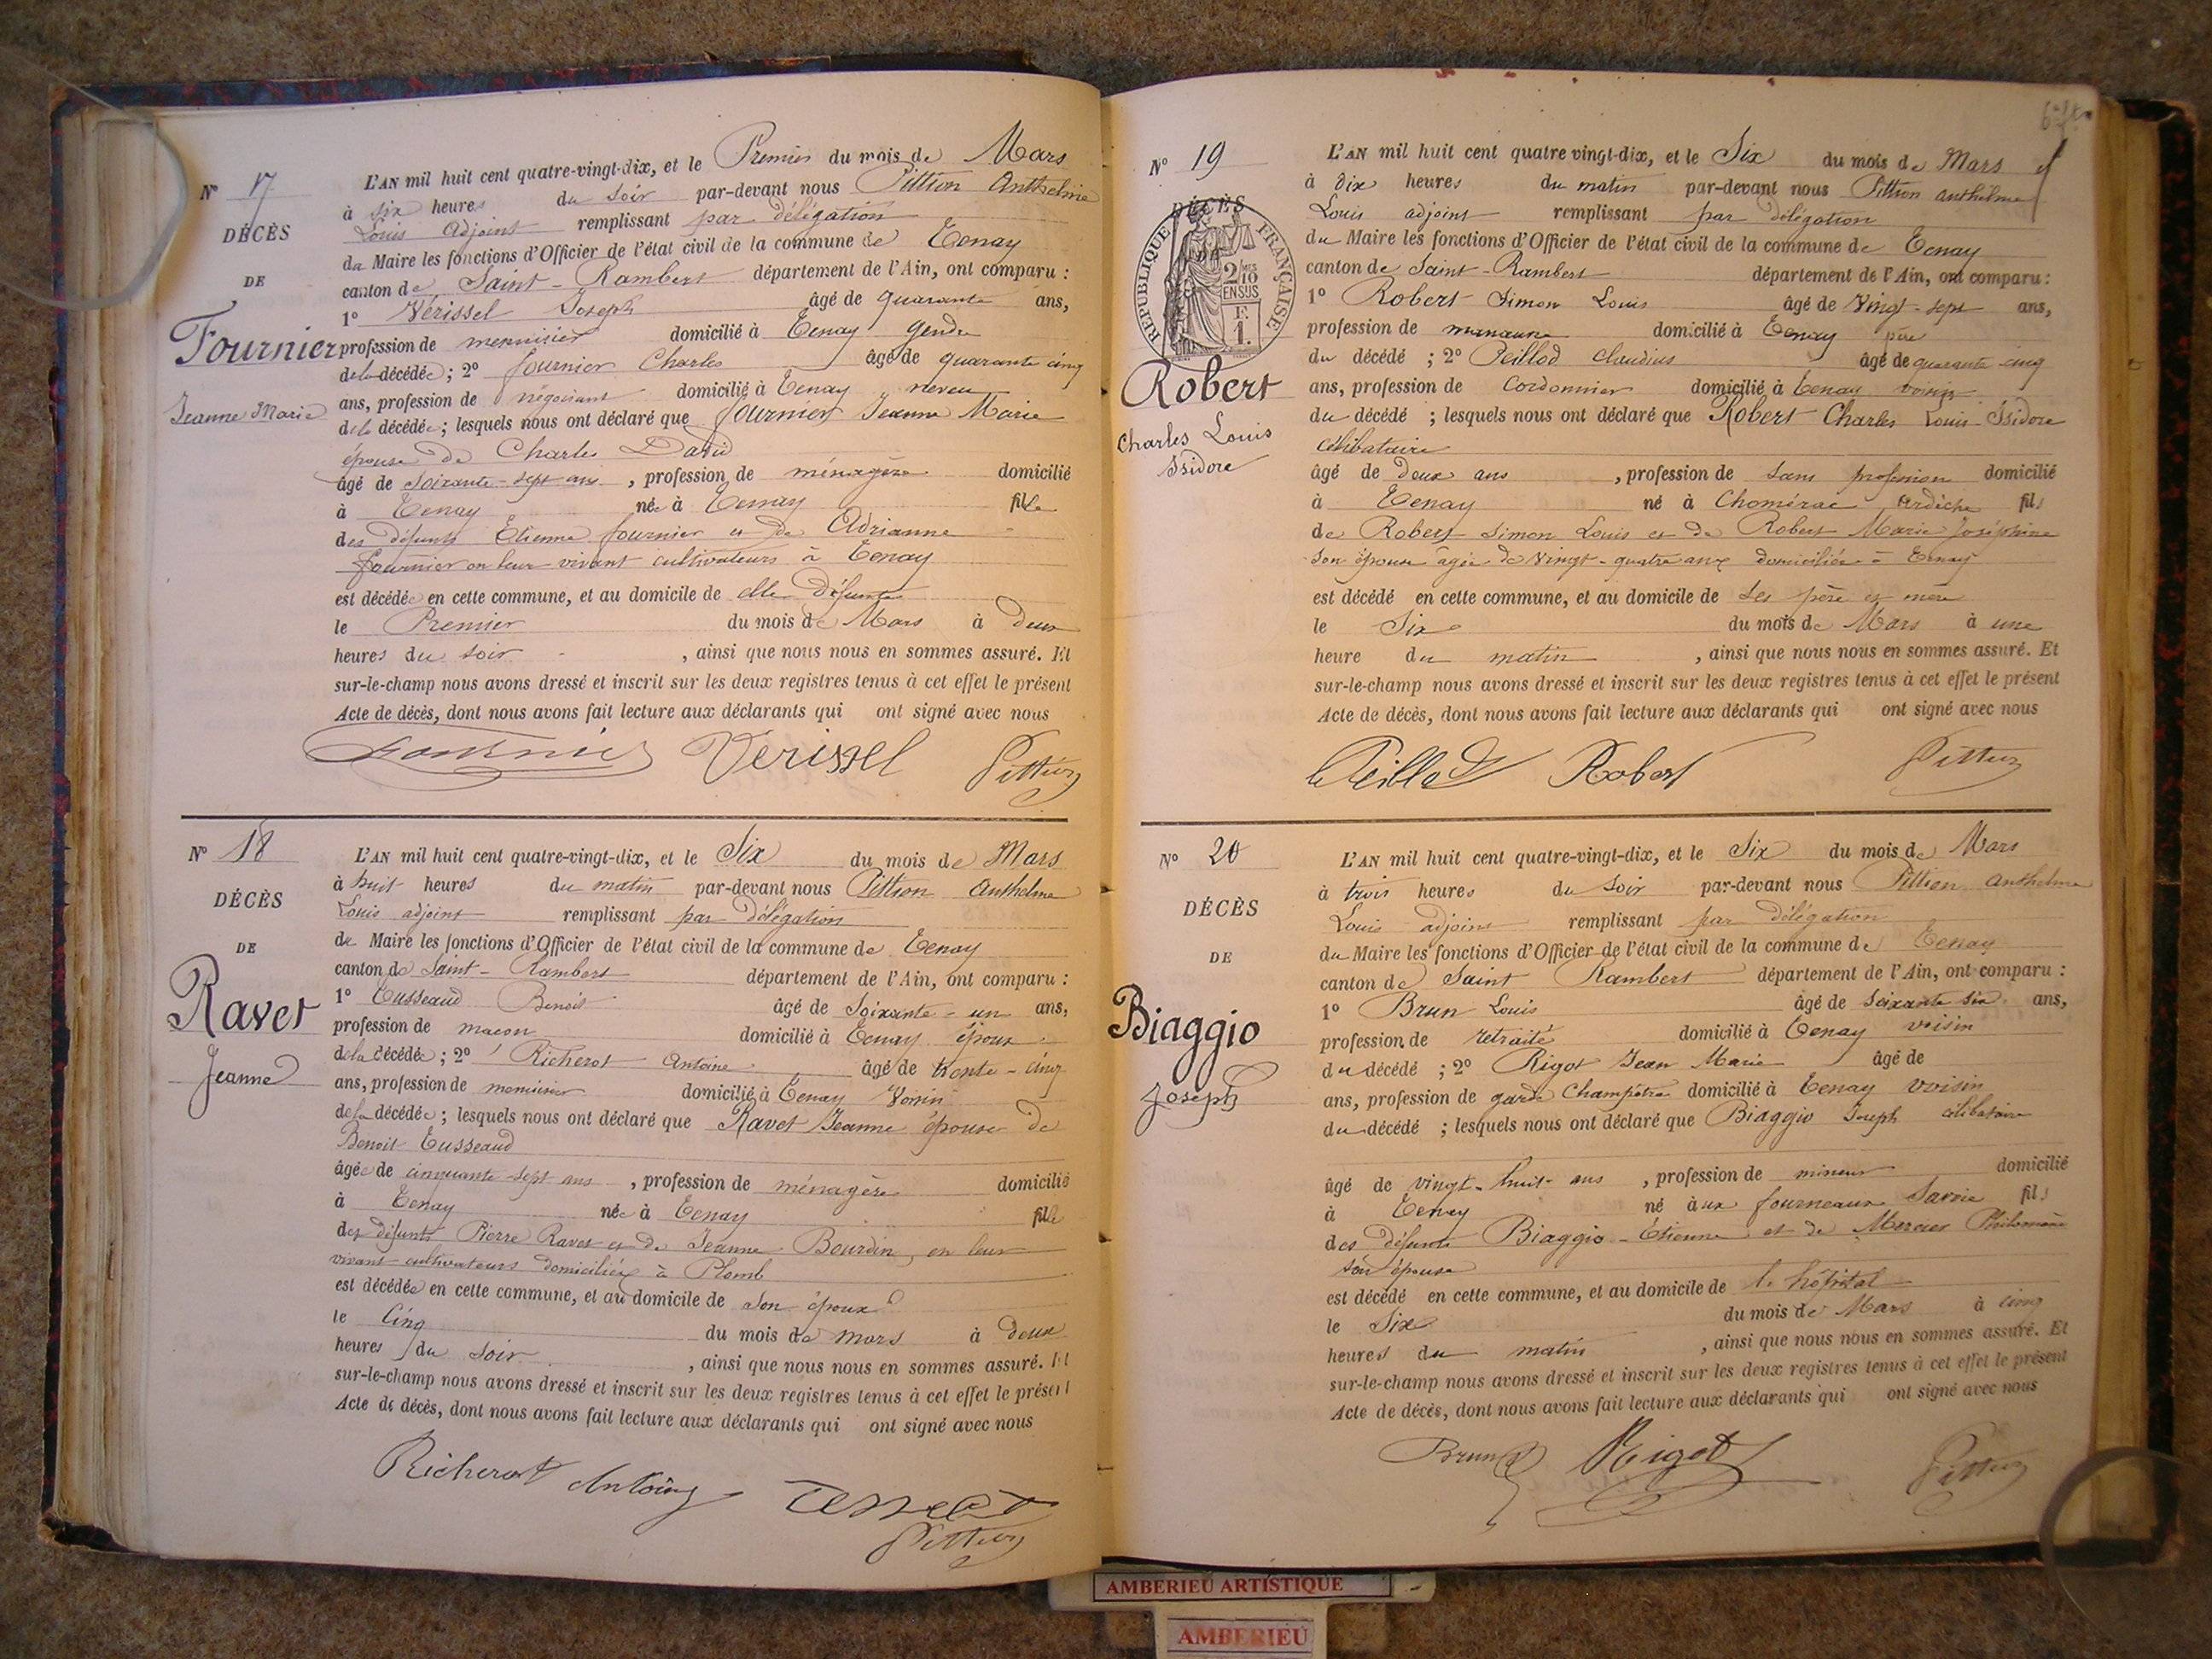 N° 17
DÉCÈS
DE
Fournier
Jeanne Marie
L'AN mil huit cent quatre-vingt-dix, et le Premier du mois de Mars
à six heures du soir par-devant nous Pittion Anthelme
Louis adjoint remplissant par délégation
du Maire les fonctions d'Officier de l'état civil de la commune de Tenay
canton de Saint-Rambert département de l'Ain, ont comparu :
1° Vérissel Joseph âgé de quarante ans,
profession de menuisier domicilié à Tenay gendre
de la décédée ; 2° fournier Charles âgé de quarante cinq
ans, profession de négociant domicilié à Tenay neveu
de la décédée ; lesquels nous ont déclaré que fournier Jeanne Marie
épouse de Charles David
âgé de soixante-sept ans, profession de ménagère domicilié
à Tenay née à Tenay fille
des défunts Etienne fournier et de Adrianne
fournier en leur vivant cultivateurs à Tenay
est décédée en cette commune, et au domicile de elle défunte
le Premier du mois de Mars à deux
heures du soir, ainsi que nous nous en sommes assuré. Et
sur-le-champ nous avons dressé et inscrit sur les deux registres tenus à cet effet le présent
Acte de décès, dont nous avons fait lecture aux déclarants qui ont signé avec nous
Fournier Verissel Pittion
N° 18
DÉCÈS
DE
Ravet
Jeanne
L'AN mil huit cent quatre-vingt-dix, et le Six du mois de Mars
à huit heures du matin par-devant nous Pittion Anthelme
Louis adjoint remplissant par délégation
du Maire les fonctions d'Officier de l'état civil de la commune de Tenay
canton de Saint-Rambert département de l'Ain, ont comparu :
1° Tusseaud Benoit âgé de Soixante-un ans,
profession de maçon domicilié à Tenay époux
de la décédée ; 2° Richerot Antoine âgé de trente-cinq
ans, profession de menuisier domicilié à Tenay Voisin
de la décédée ; lesquels nous ont déclaré que Ravet Jeanne épouse de
Benoit Tusseaud
âgée de cinquante-sept ans, profession de ménagère domicilié
à Tenay née à Tenay fille
des défunts Pierre Ravet et de Jeanne Bourdin, en leur
vivant cultivateurs domiciliés à Plomb
est décédée en cette commune, et au domicile de son époux
le Cinq du mois de mars à deux
heures du soir, ainsi que nous nous en sommes assuré. Et
sur-le-champ nous avons dressé et inscrit sur les deux registres tenus à cet effet le présent
Acte de décès, dont nous avons fait lecture aux déclarants qui ont signé avec nous
Richerot Antoine
Pittion
N° 19
DÉCÈS
RÉPUBLIQUE FRANÇAISE
2/10
EN SUS
F.
1.
Robert
Charles Louis
Isidore
L'AN mil huit cent quatre vingt-dix, et le Six du mois de Mars
à dix heures du matin par-devant nous Pittion anthelme
Louis adjoint remplissant par délégation
du Maire les fonctions d'Officier de l'état civil de la commune de Tenay
canton de Saint-Rambert département de l'Ain, ont comparu :
1° Robert Simon Louis âgé de Vingt-sept ans,
profession de domicilié à Tenay père
du décédé ; 2° Peillod Claudius âgé de quarante cinq
ans, profession de cordonnier domicilié à Tenay voisin
du décédé ; lesquels nous ont déclaré que Robert Charles Louis Isidore
célibataire
âgé de deux ans, profession de sans profession domicilié
à Tenay né à Chomérac Ardèche fils
de Robert Simon Louis et de Robert Marie Joséphine
son épouse âgée de vingt-quatre ans domiciliée à Tenay
est décédé en cette commune, et au domicile de ses père et mère
le Six du mois de Mars à une
heure du matin, ainsi que nous nous en sommes assuré. Et
sur-le-champ nous avons dressé et inscrit sur les deux registres tenus à cet effet le présent
Acte de décès, dont nous avons fait lecture aux déclarants qui ont signé avec nous
Peillod Robert Pittion
N° 20
DÉCÈS
DE
Biaggio
Joseph
L'AN mil huit cent quatre-vingt-dix, et le Six du mois de Mars
à trois heures du soir par-devant nous Pittion anthelme
Louis adjoint remplissant par délégation
du Maire les fonctions d'Officier de l'état civil de la commune de Tenay
canton de Saint Rambert département de l'Ain, ont comparu :
1° Brun Louis âgé de soixante six ans,
profession de retraité domicilié à Tenay voisin
du décédé ; 2° Rigot Jean Marie âgé de
ans, profession de garde Champêtre domicilié à Tenay voisin
du décédé ; lesquels nous ont déclaré que Biaggio Joseph célibataire
âgé de vingt-huit ans, profession de mineur domicilié
à Tenay né aux fourneaux Savoie fils
des défunts Biaggio Etienne et de Mercier Philomène
son épouse
est décédé en cette commune, et au domicile de l'hôpital
le Six du mois de Mars à cinq
heures du matin, ainsi que nous nous en sommes assuré. Et
sur-le-champ nous avons dressé et inscrit sur les deux registres tenus à cet effet le présent
Acte de décès, dont nous avons fait lecture aux déclarants qui ont signé avec nous
Brun Rigot Pittion
AMBERIEU ARTISTIQUE
AMBERIEU